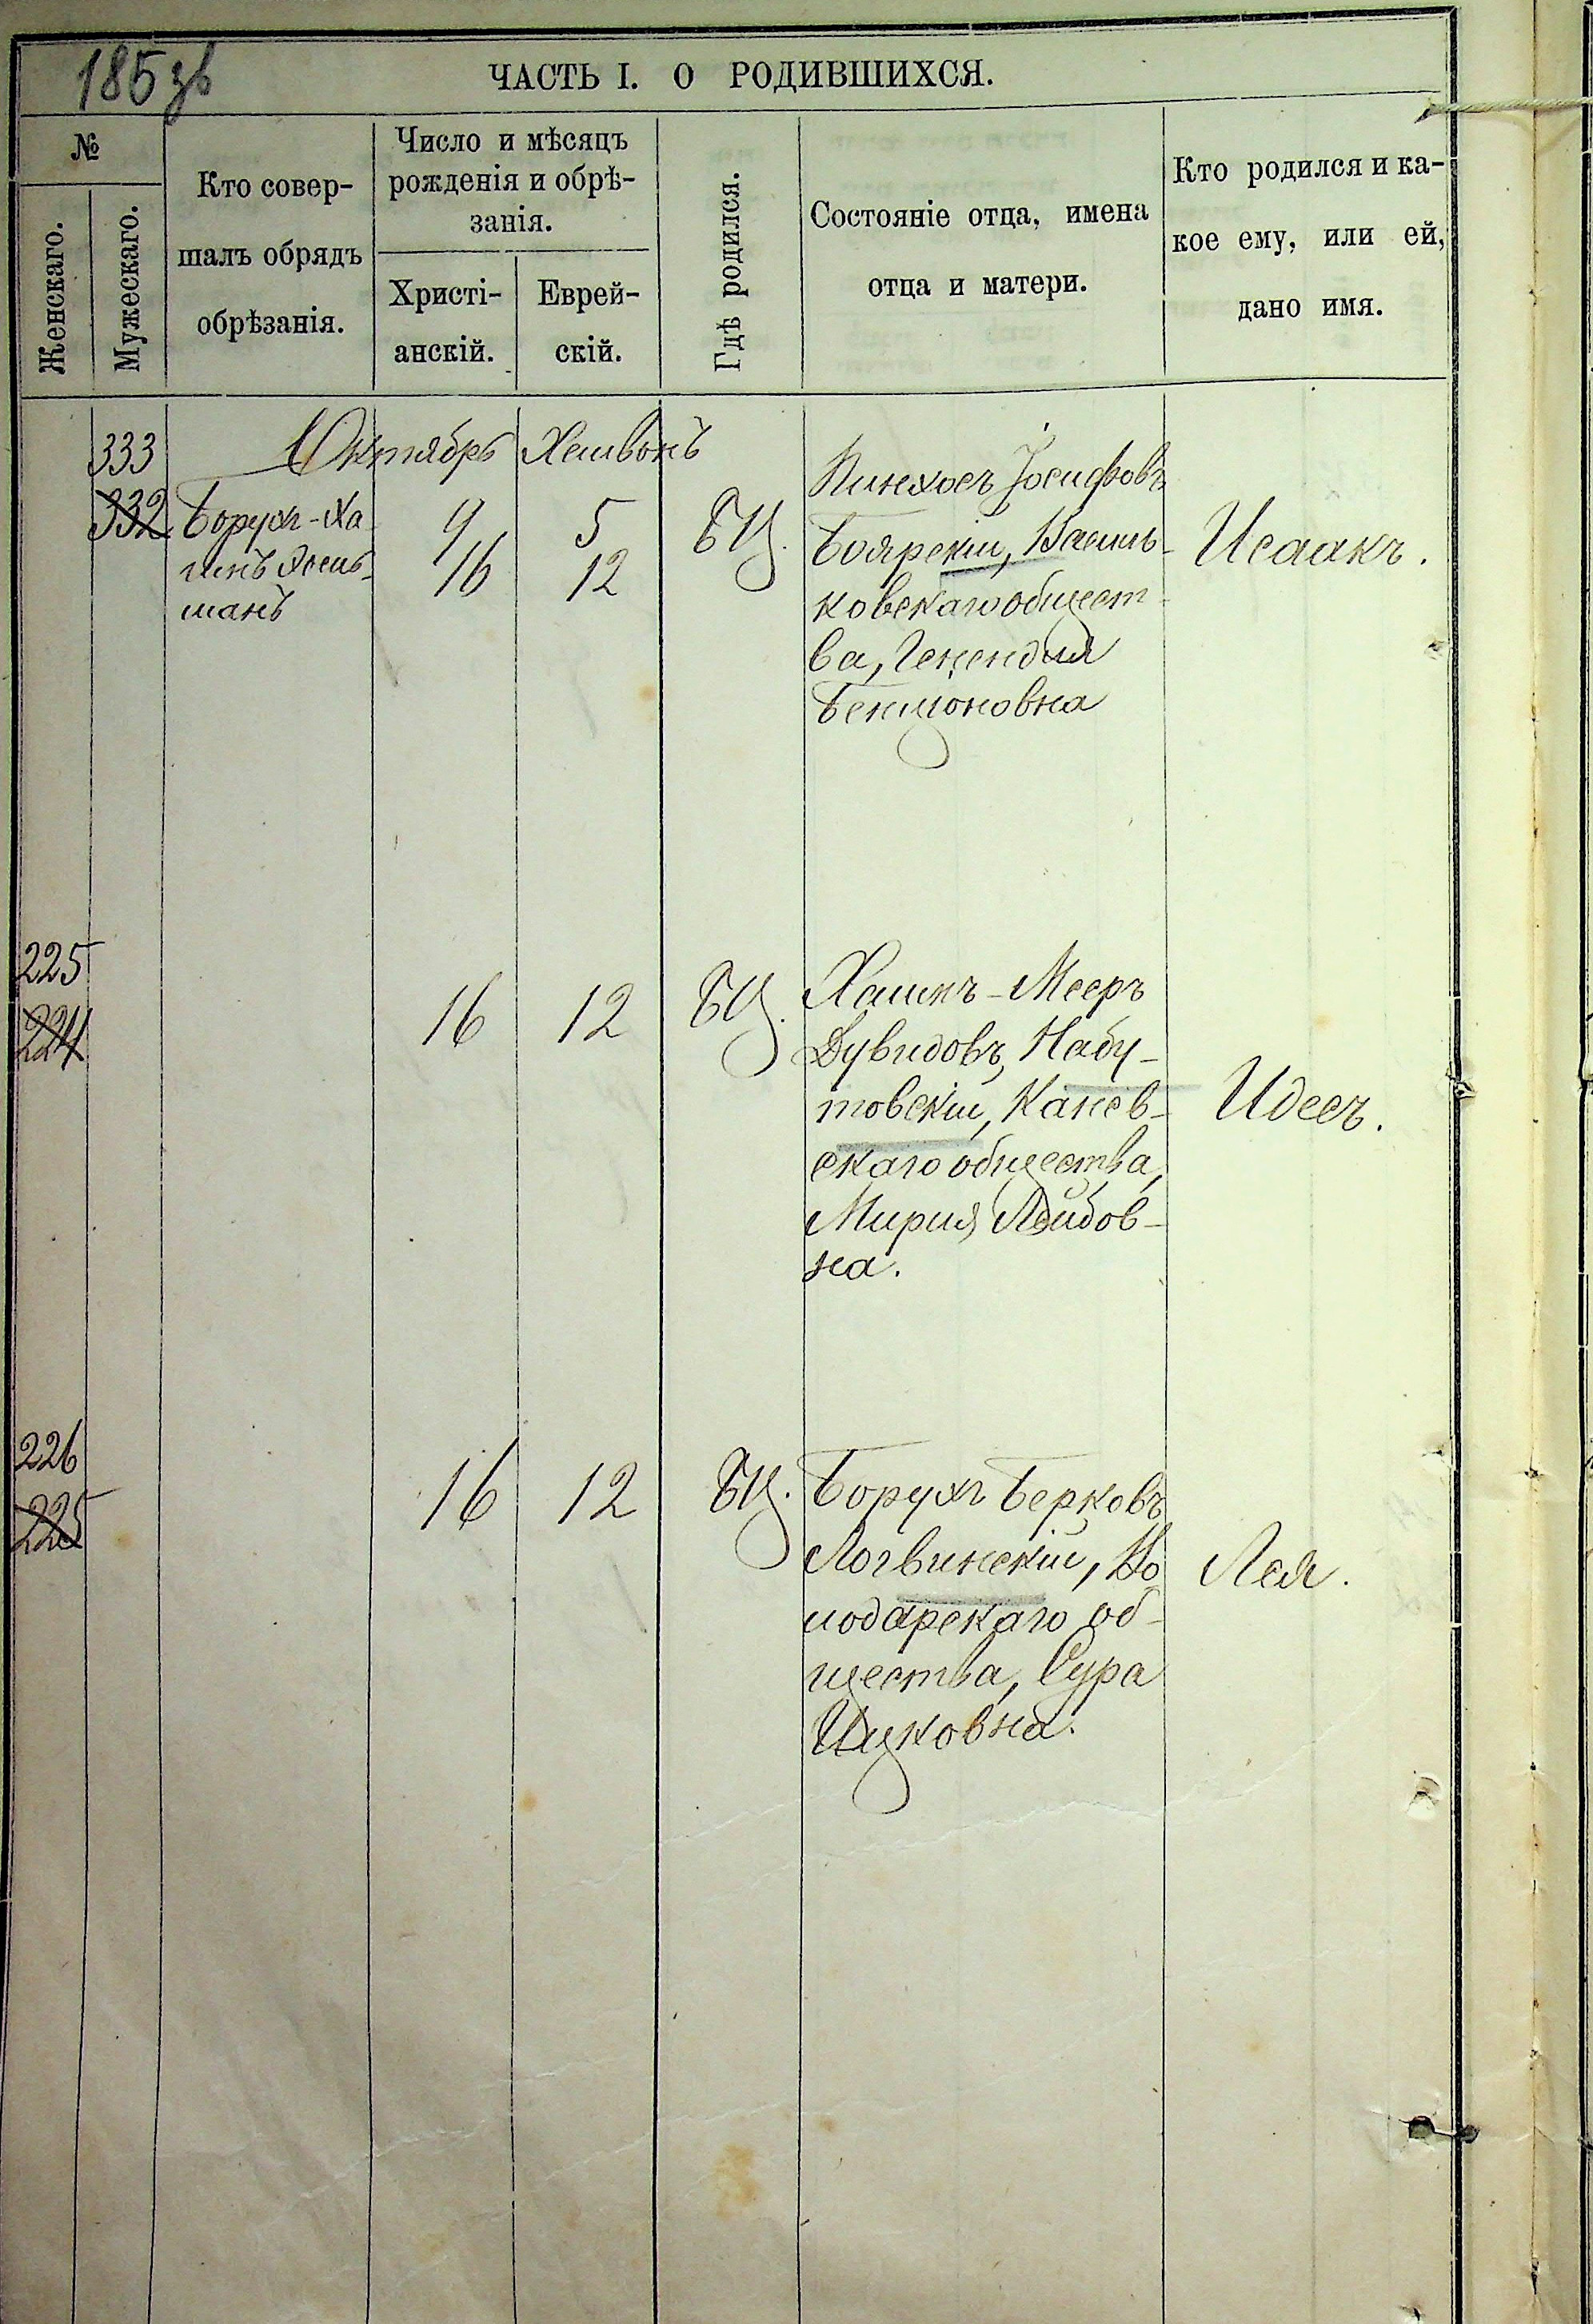 185 зв
ЧАСТЬ I. О РОДИВШИХСЯ.
№
Женскаго.
Мужескаго.
Кто совер-
шалъ обрядъ
обрѣзанія.
Число и мѣсяцъ
рожденія и обрѣ-
занія.
Христі-
анскій.
Еврей-
скій.
Гдѣ родился.
Состояніе отца, имена
отца и матери.
Кто родился и ка-
кое ему, или ей,
дано имя.
Октябрь Хешвонъ
333
332
Борухъ-Ха
имъ
шанъ
9
16
5
12
БЦ.
Пинхосъ Іосифовъ
Боярскій, Василь-
ковскаго общест-
ва, Генендля
Бенціоновна
Исаакъ.
225
224
16
12
БЦ.
Хаимъ-Мееръ
Дувидовъ, Набу-
товскій, Канев-
скаго общества,
Мирия Лейбов-
на.
Идесъ.
226
225
16
12
БЦ.
Борухъ Берковъ
Логвинскій, Во
лодарскаго об-
щества, Сура
Ицковна.
Лея.